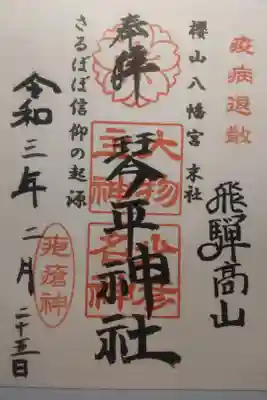 疫病退散
飛騨高山
櫻山八幡宮 末社
奉拝
琴平神社
大物主神
少彦名神
さるぼぼ信仰の起源
疱瘡神
令和三年 二月 二十五日